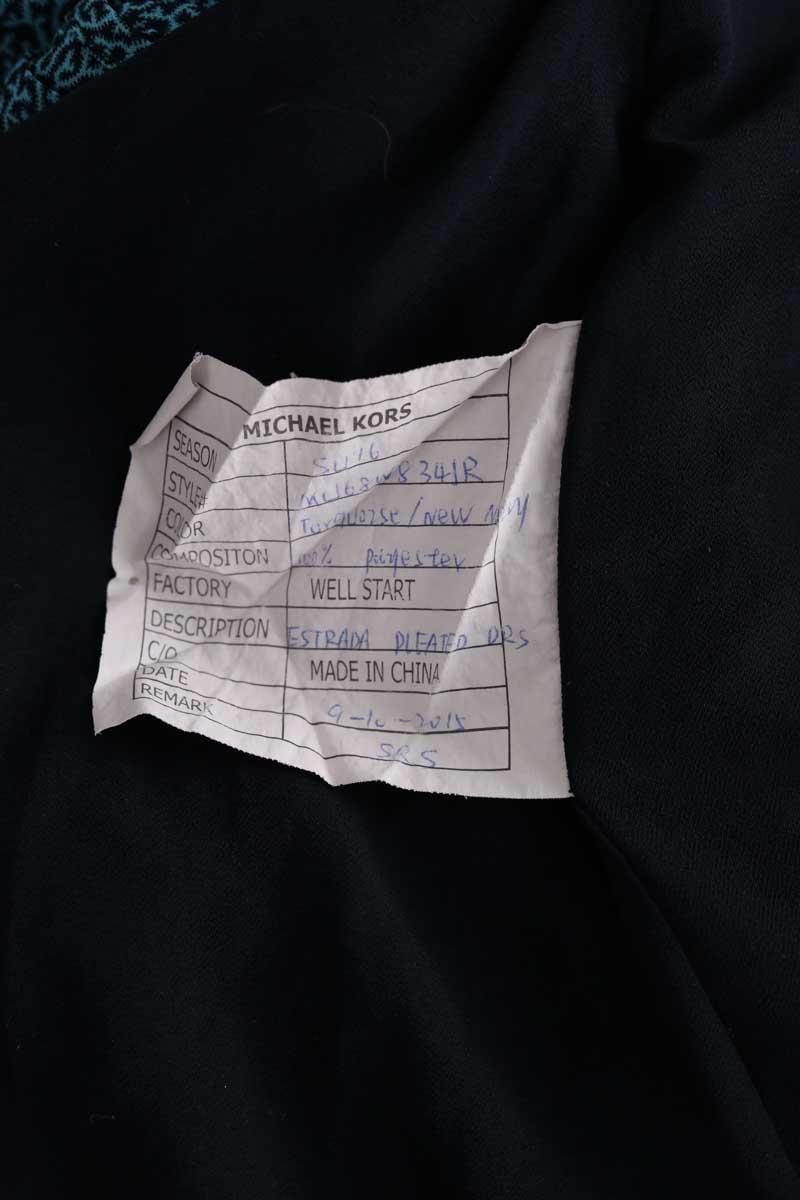 MICHAEL KORS
SEASON SU'16
STYLE# MU68W8341R
COLOR Turquoise/NEW NAVY
COMPOSITON 100% polyester
FACTORY WELL START
DESCRIPTION ESTRADA PLEATED DRS
C/O MADE IN CHINA
DATE 9-10-2015
REMARK SRS